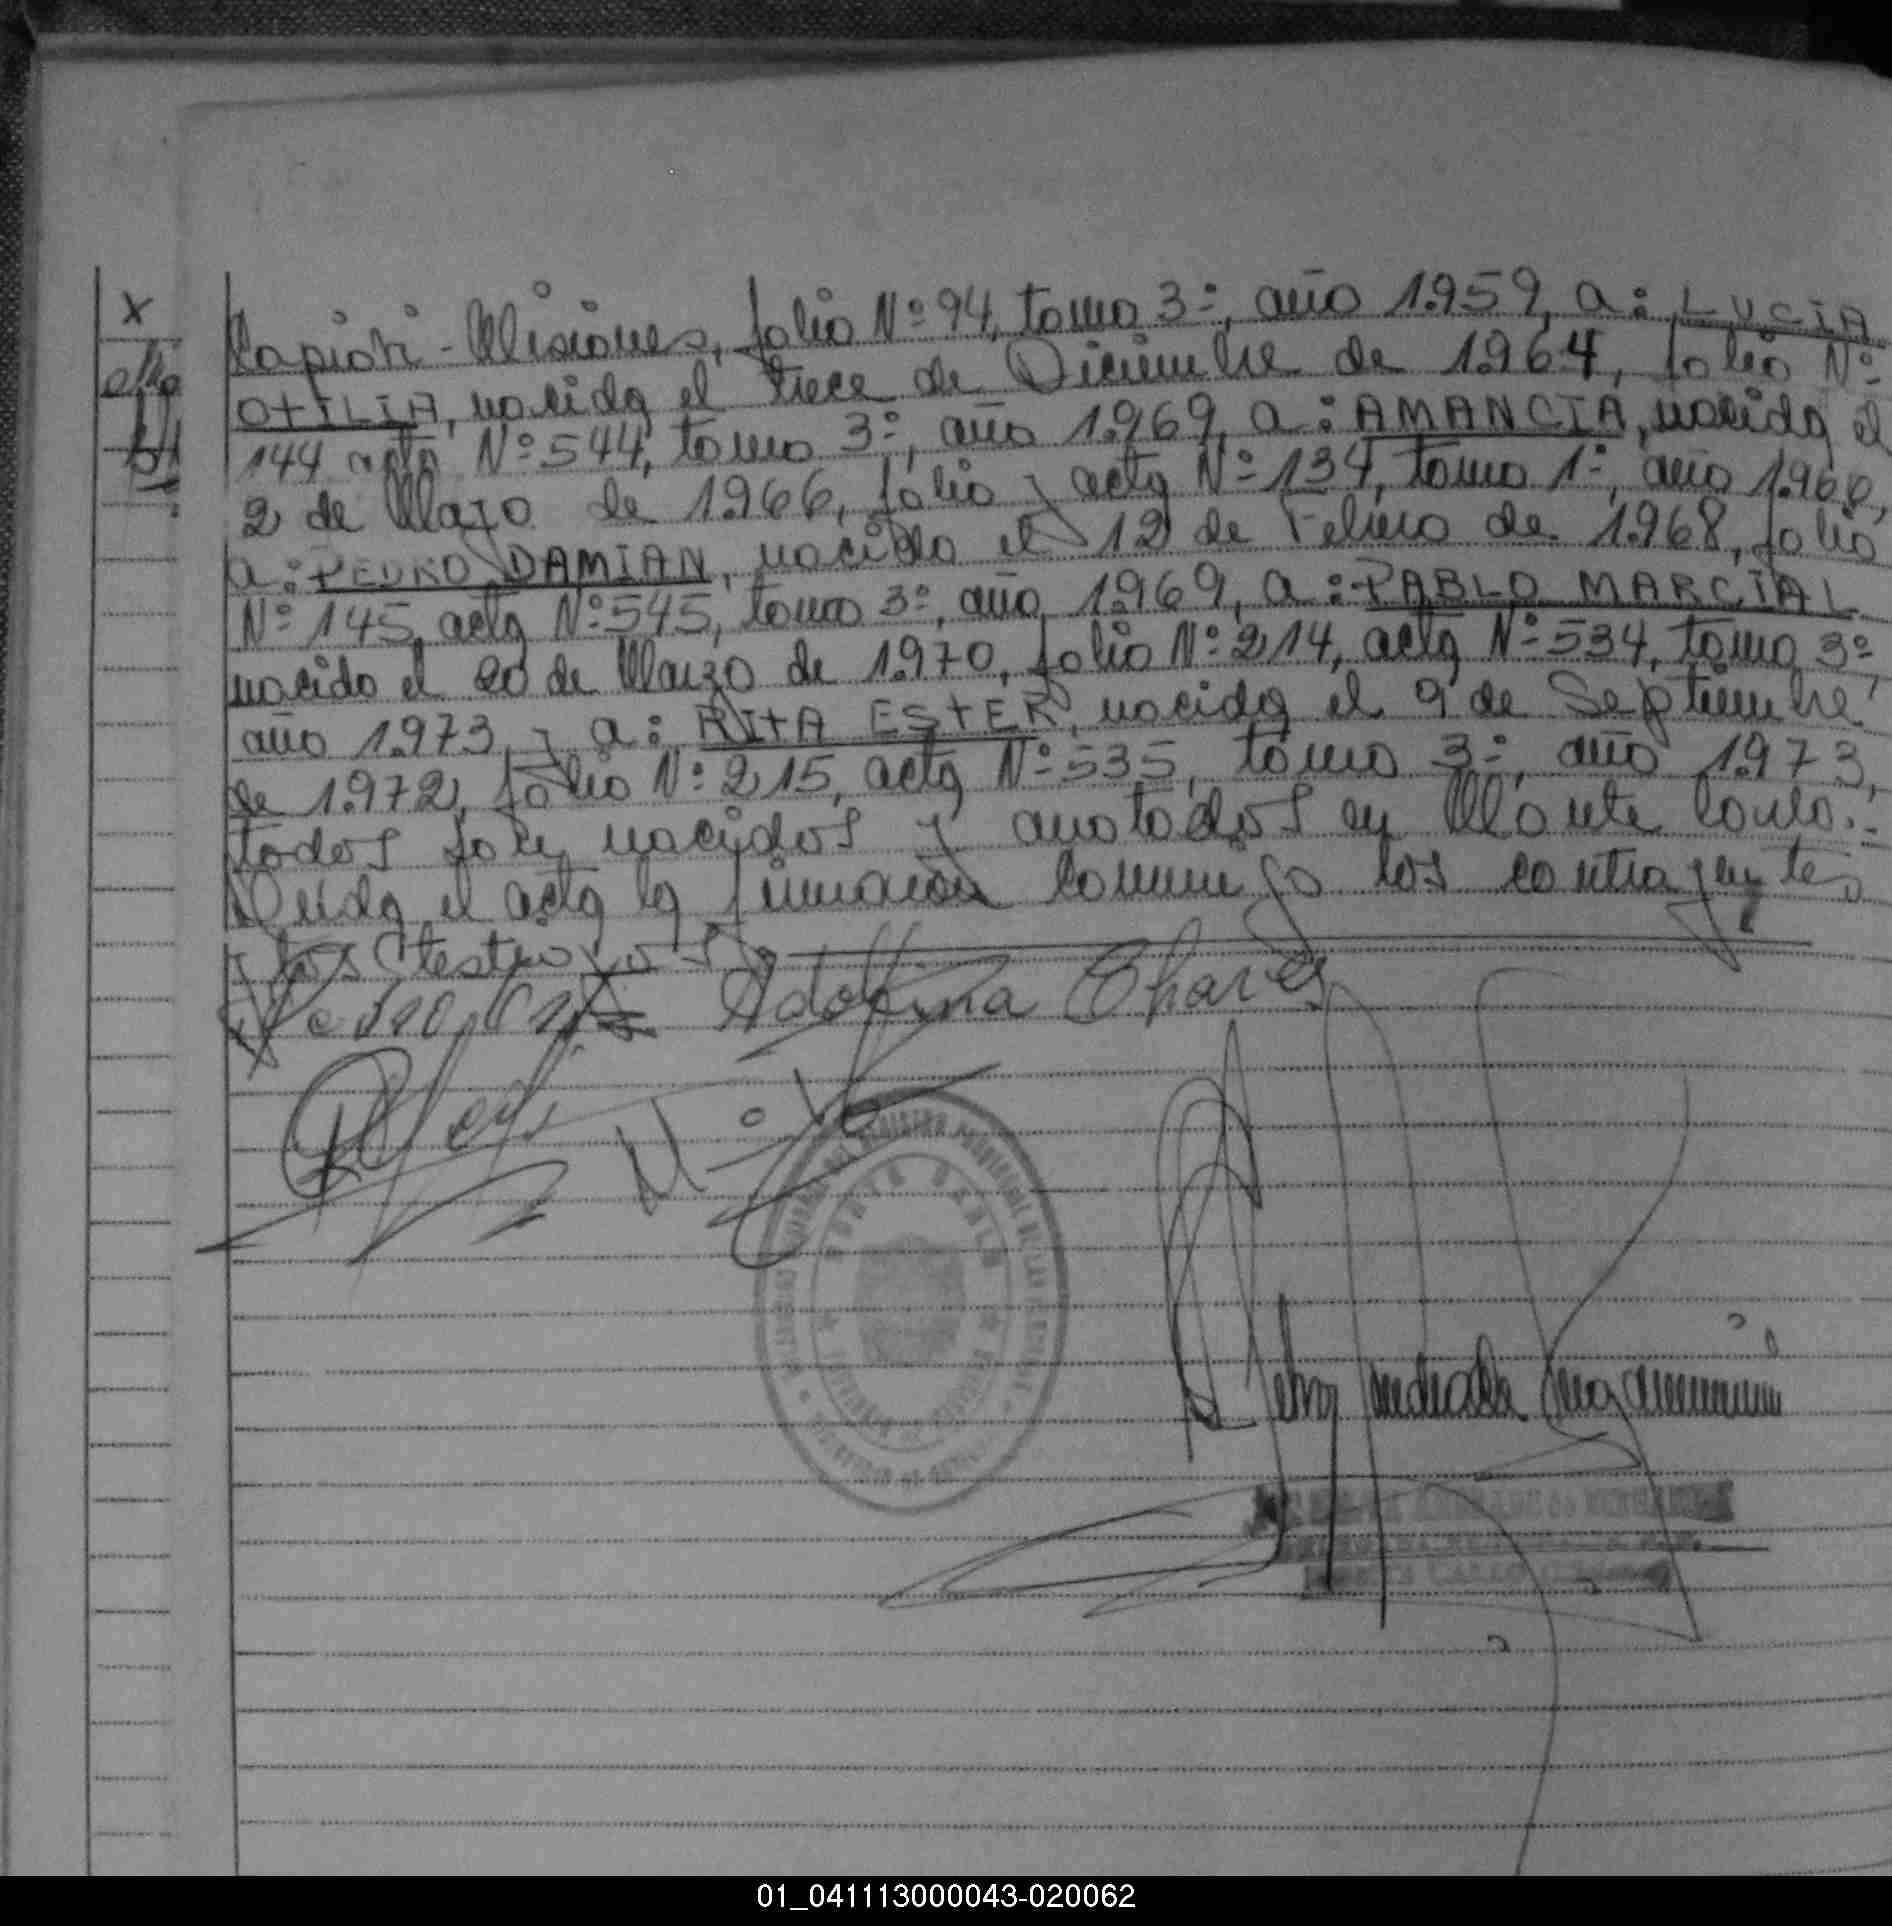 x
Capiovi - Misiones, folio Nº 94, tomo 3º, año 1.959, a: LUCIA
OTILIA, nacida el trece de Diciembre de 1.964, folio Nº
144 acta Nº 544, tomo 3º, año 1.969, a: AMANCIA, nacida el
2 de Mayo de 1.966, folio y acta Nº 134, tomo 1º, año 1.966,
a: PEDRO DAMIAN, nacido el 12 de Febrero de 1.968, folio
Nº 145, acta Nº 545, tomo 3º, año 1.969, a: PABLO MARCIAL
nacido el 20 de Marzo de 1.970, folio Nº 214, acta Nº 534, tomo 3º
año 1.973, y a: RITA ESTER, nacida el 9 de Septiembre
de 1.972, folio Nº 215, acta Nº 535, tomo 3º, año 1.973,
todos son nacidos y anotados en Monte Carlo.-
Leida el acta la firmaron conmigo los contrayentes
y los testigos
Adolfina Chaves
01_041113000043-020062